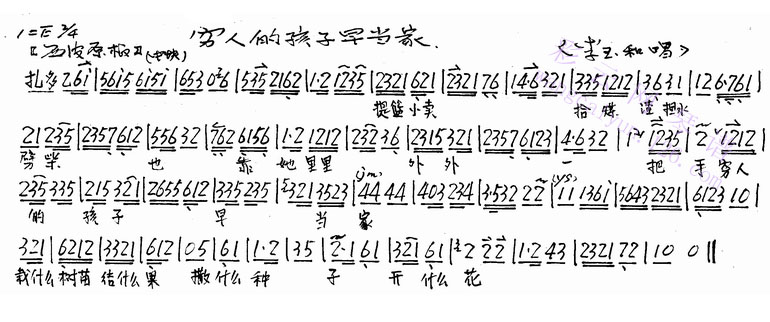 1=E 2/4 穷人的孩子早当家.
〖西皮原板〗(中快) <李玉和唱>
扎多 26i|56i5 6i5i|653 0 3 6|535 2162|1·2 1235|2321 621|2321 76|14·6321|3351212|3631|126·761|
提篮小卖 拾煤渣担水
21235|2357612|55632|762 6156|1·2 1212|23236|2315321|23576123|4·632|1 1235|2 1212|
劈柴 也 靠 她里里 外外 一 把手穷人
235335|215321|2655612|335235|2321 3523|44 44|403234|3·532 22|11 136i|56432321|612310|
的 孩子 早 当家
321|6212|3321|612|05|61|1·2|35|2·1 61|321 61|2 22|1·2 43|2321 72|10 0||
栽什么树苗结什么果 撒什么种 子 开什么花